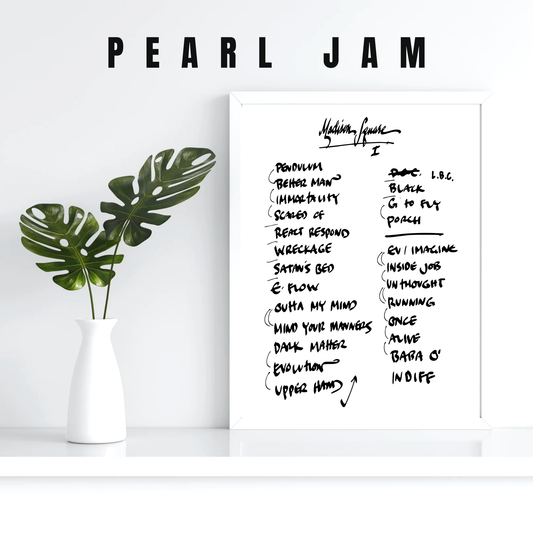 PEARL JAM
Madison Square
I
PENDULUM
BETTER MAN
IMMORTALITY
SCARED OF
REACT RESPOND
WRECKAGE
SATAN'S BED
E. FLOW
OUTTA MY MIND
MIND YOUR MANNERS
DARK MATTER
EVOLUTION
UPPER HAND
D.O.C. L.B.C.
BLACK
G TO FLY
PORCH
EV / IMAGINE
INSIDE JOB
UNTHOUGHT
RUNNING
ONCE
ALIVE
BABA O'
INDIFF